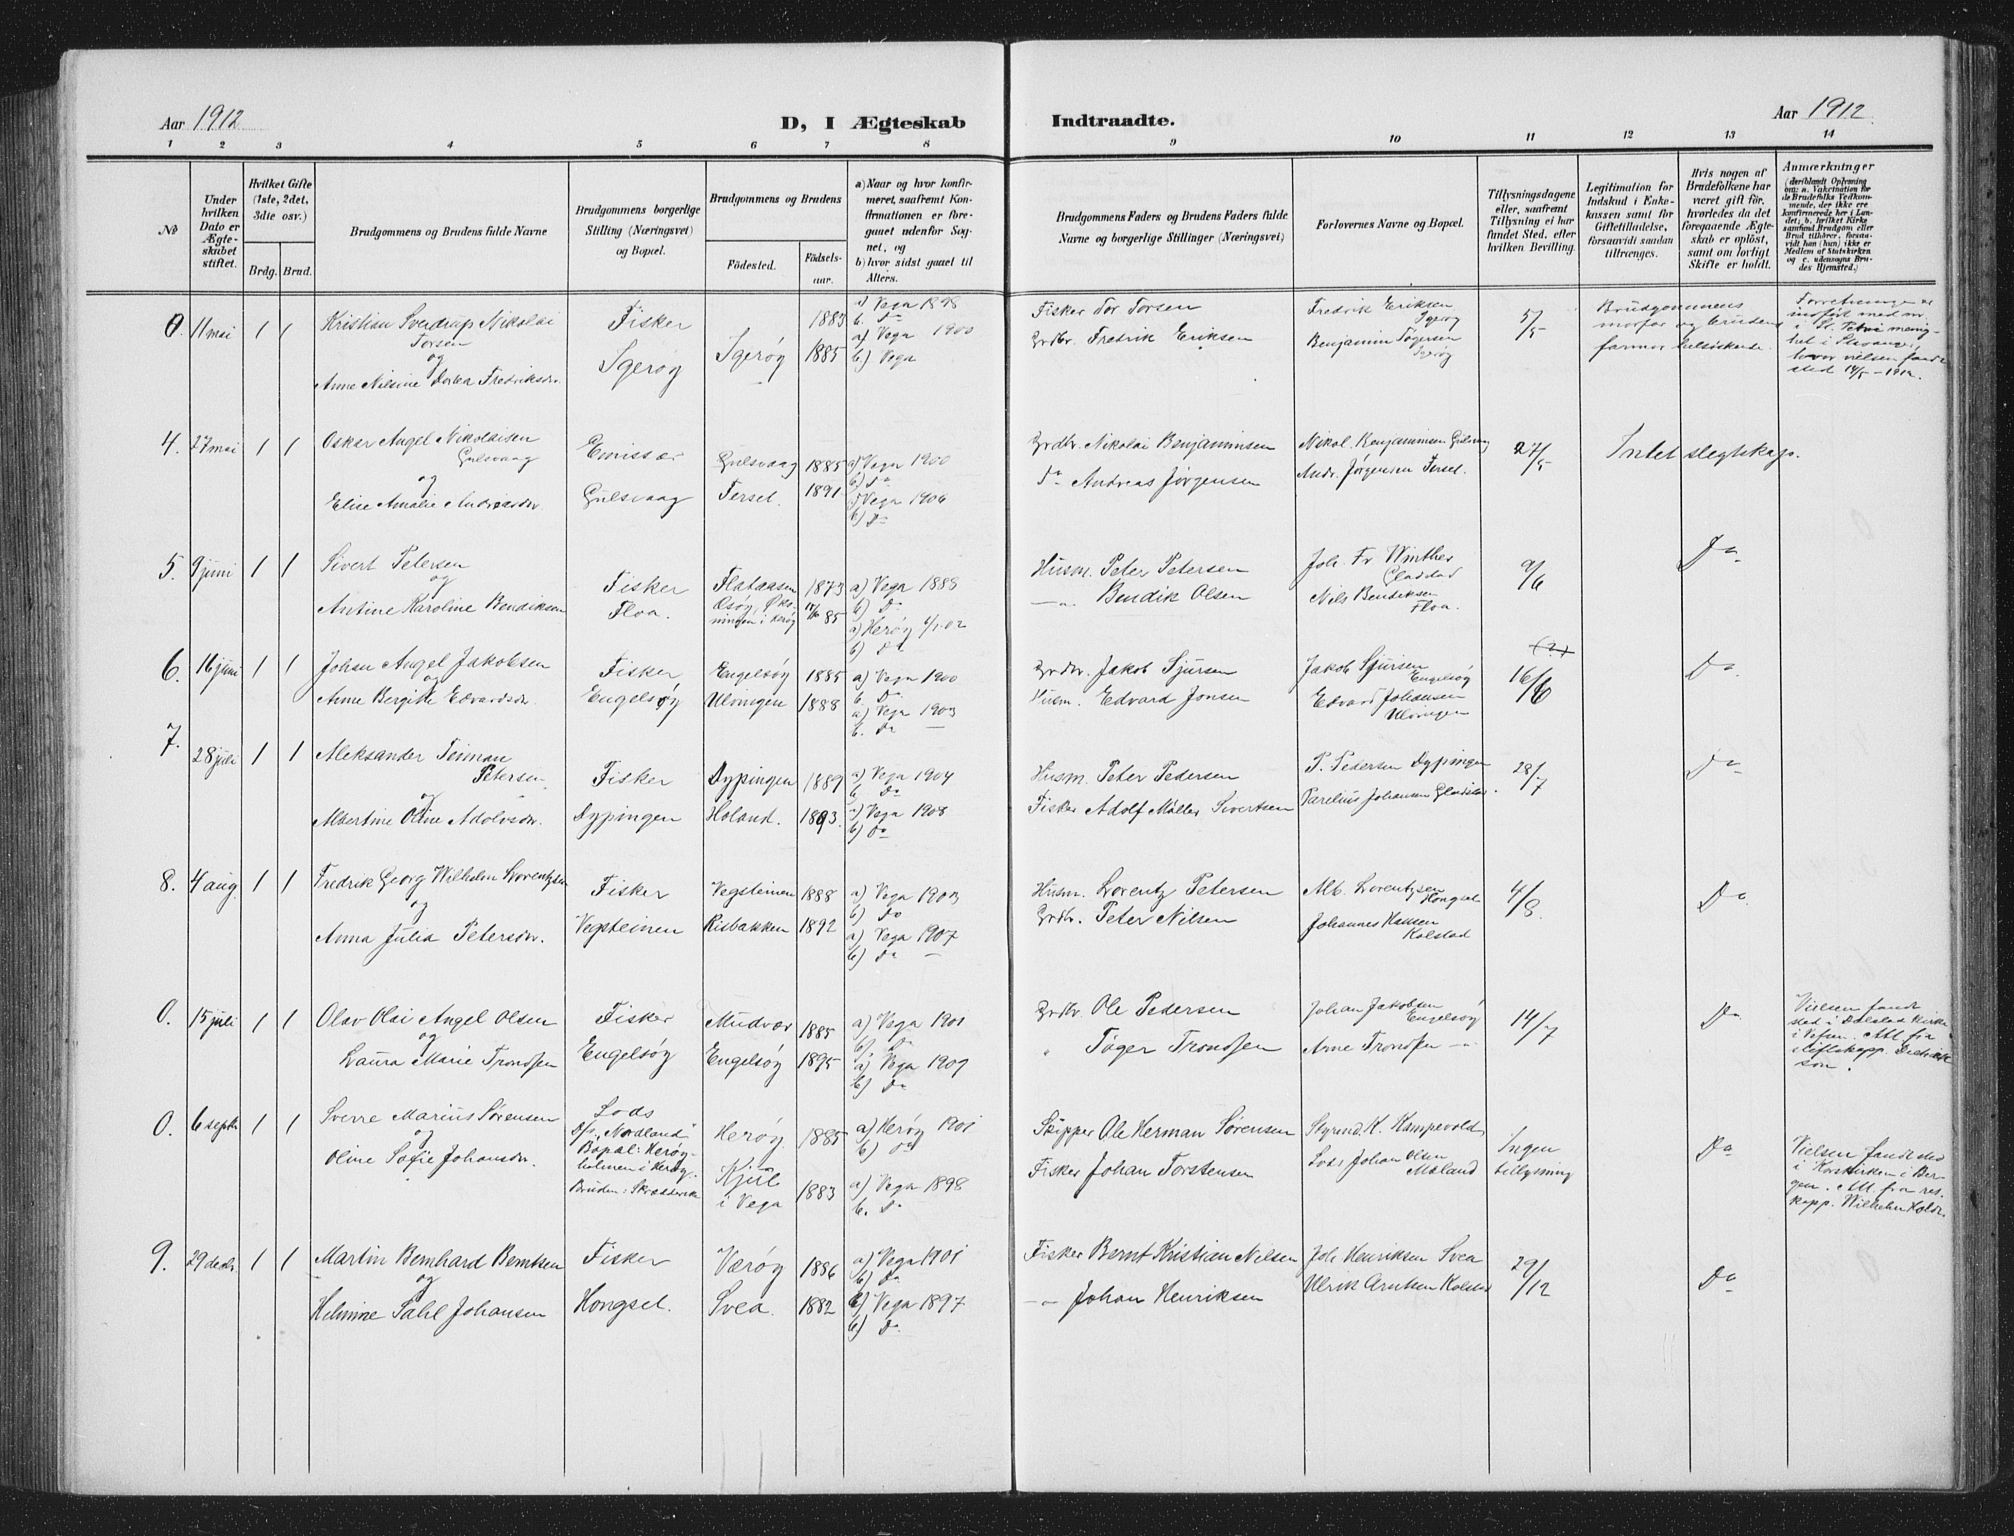 Aar 1912
D, I Ægteskab Indtraadte.
Aar 1912.
1 2 3 4 5 6 7 8 9 10 11 12 13 14
№
Under hvilken Dato er Ægteskabet stiftet.
Hvilket Gifte (1ste, 2det, 3die osv.)
Brdg. Brud.
Brudgommens og Brudens fulde Navne
Brudgommens borgerlige Stilling (Næringsvei) og Bopæl.
Brudgommens og Brudens
Födested.
Födselsaar.
a) Naar og hvor konfirmeret, saafremt Konfirmationen er foregaaet udenfor Sognet, og
b) hvor sidst gaaet til Alters.
Brudgommens Faders og Brudens Faders fulde Navne og borgerlige Stillinger (Næringsvei)
Forlovernes Navne og Bopæl.
Tillysningsdagene eller, saafremt Tillysning ei har fundet Sted, efter hvilken Bevilling.
Legitimation for Indskud i Enkekassen samt for Giftetilladelse, forsaavidt saadan tiltrænges.
Hvis nogen af Brudefolkene har været gift för, hvorledes da det foregaaende Ægteskab er oplöst, samt om lovligt Skifte er holdt.
Anmærkninger
(deriblandt Oplysning om: a. Vakcination for de Brudefolks Vedkommende, der ikke ere konfirmerede her i Landet; b. hvilket Kirkesamfund Brudgom eller Brud tilhörer, forsaavidt han (hun) ikke er Medlem af Statskirken og c. udensogns Brudes Hjemsted.)
0. 11 mai 1 1 Kristian Sverdrup Nikolai Torsen
og
Anne Nilsine Dortea Fredriksdr.
Fisker
Igerøy
Igerøy
1883
1885
a) Vega 1898
b. Do
a) Vega 1900
b) Vega
Fisker Tor Torsen
Grdbr. Fredrik Eriksen
Fredrik Eriksen Igerøy
Benjamin Tøgersen Igerøy
5/5
Brudgommens morfar og brudens farmor helsøskende.
Forretningen er
i St. Petri menighet i Stavanger, hvor vielsen fandt sted 14/5 - 1912.
4. 27 mai 1 1 Oskar Angel Nikolaisen Gulsvaag
og
Elise Amalie Andreasdr.
Emissær
Gulsvaag
Gulsvaag 1885
Tersel. 1891
a) Vega 1900
b) Do
a) Vega 1906
b) Do
Grdbr. Nikolai Benjaminsen
Do Andreas Jørgensen
Nikol. Benjaminsen Gulsvaag
Andr. Jørgensen Tersel.
27/5
Intet slegtskap.
5. 9 juni 1 1 Sivert Petersen
og
Antine Karoline Bendiksen
Fisker
Floa.
Flataasen 1873
a) Vega 1888
b) Do
a) Herøy
b) Do
Husm. Peter Petersen
—"— Bendik Olsen
Joh. Fr. Winther Gladstad
Nils Bendiksen Floa.
9/6
Do
6. 16 juni 1 1 Johan Angel Jakobsen
og
Anne Bergitte Edvardsdr.
Fisker
Engelsøy
Engelsøy 1885
Ulvingen 1888
a) Vega 1900
b. Do
a) Vega 1903
b. Do
Grdbr. Jakob Sjursen
Husm. Edvard Jonsen
Jakob Sjursen Engelsøy
Edvard Johansen Ulvingen
16/6
Do
7. 28 juli 1 1 Aleksander Teiman Petersen
og
Albertine Oline Adolvsdr.
Fisker
Dypingen
Dypingen 1889
Holand. 1893
a) Vega 1904
b. Do
a) Vega 1908
b) Do
Husm. Peter Pedersen
Fisker Adolf Møller Sivertsen
P. Pedersen Dypingen
Parelius Johansen Gladstad.
28/7
Do
8. 4 aug. 1 1 Fredrik Georg Wilhelm Lorentzen
og
Anna Julia Petersdr.
Fisker
Vegsteinen
Vegsteinen 1888
Risbakken 1892
a) Vega 1903
b) Do
a) Vega 1907
b) Do
Husm. Lorentz Petersen
Grdbr. Peter Nilsen
Alb. Lorentzsen Hongset
Johannes Hansen Kolstad
4/8.
Do
0. 15 juli 1 1 Olav Olai Angel Olsen
og
Laura Marie Trondsen
Fisker
Engelsøy
Mudvær 1885
Engelsøy 1895
a) Vega 1901
b) Do
a) Vega 1909
b) Do
Grdbr. Ole Pedersen
" Tøger Trondsen
Johan Jakobsen Engelsøy
Arne Trondsen —"—
14/7
Do
Vielsen fandt sted i Dolstad Kirke i Vefsn. Att. fra stiftskapp. Didrikson.
0. 6 septbr 1 1 Sverre Marius Sørensen
og
Oline Sofie Johansdr.
Lods
D/s. "Nordland"
Bopæl: Herøyholmen i Herøy.
Bruden: Skrædderske
Herøy 1885
Kjul i Vega 1883
a) Herøy 1901
b) Do
a) Vega 1898
b. Do
Skipper Ole Herman Sørensen
Fisker Johan Torstensen
Styrmd. K. Kampevold
Lods Johan Olsen Moland
Ingen tillysning
Do
Vielsen fandt sted i Korskirken i Bergen. Att. fra res. kapp. Wilhelm Koldr.
9. 29 decbr. 1 1 Martin Bernhard Berntsen
og
Helmine Dahl Johansen
Fisker
Hongset.
Værøy 1886
Svea. 1882
a) Vega 1901
b) Do
a) Vega 1897
b) Do
Fisker Bernt Kristian Nilsen
—"— Johan Henriksen
Joh. Henriksen Svea
Ulrik Arntsen Kolstad
29/12
Do